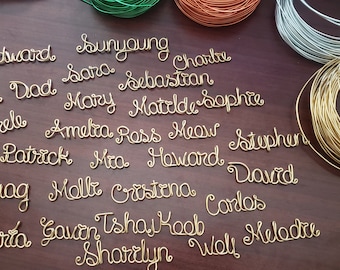 Sunyoung
Charlie
Dad
Sara
Sebastian
Mary
Matilde
Sophie
Amelia
Ross
Meow
Stephen
Patrick
Mia
Howard
David
Molli
Cristina
Carlos
Gawen
Tsha,Koob
Wolf
Melodie
Sharilyn